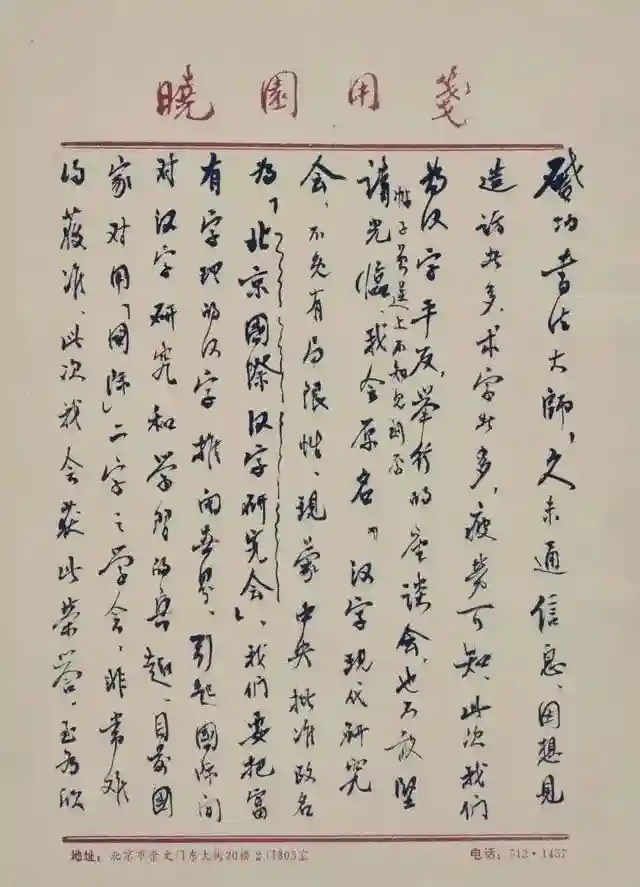 曉園用箋
啟功書法大師，久未通信息、因想見
造訪者多，求字者多，疲勞可知、此次我們
為汉字平反，舉行的座談会，也不敢堅
帖子曾送上不知見到否
請光临、我会原名"汉字現代研究
会，不免有局限性、現蒙中央批准改名
为「北京國際汉字研究会」、我們要把富
有字理的汉字推向世界、引起國际間
对汉字研究和学習的兴趣、目前國
家对用「國际」二字之学会，非常难
得获准、此次我会获此榮誉，至为欣
地址：北京市崇文门东大街20楼2门803室 电话：512·1457